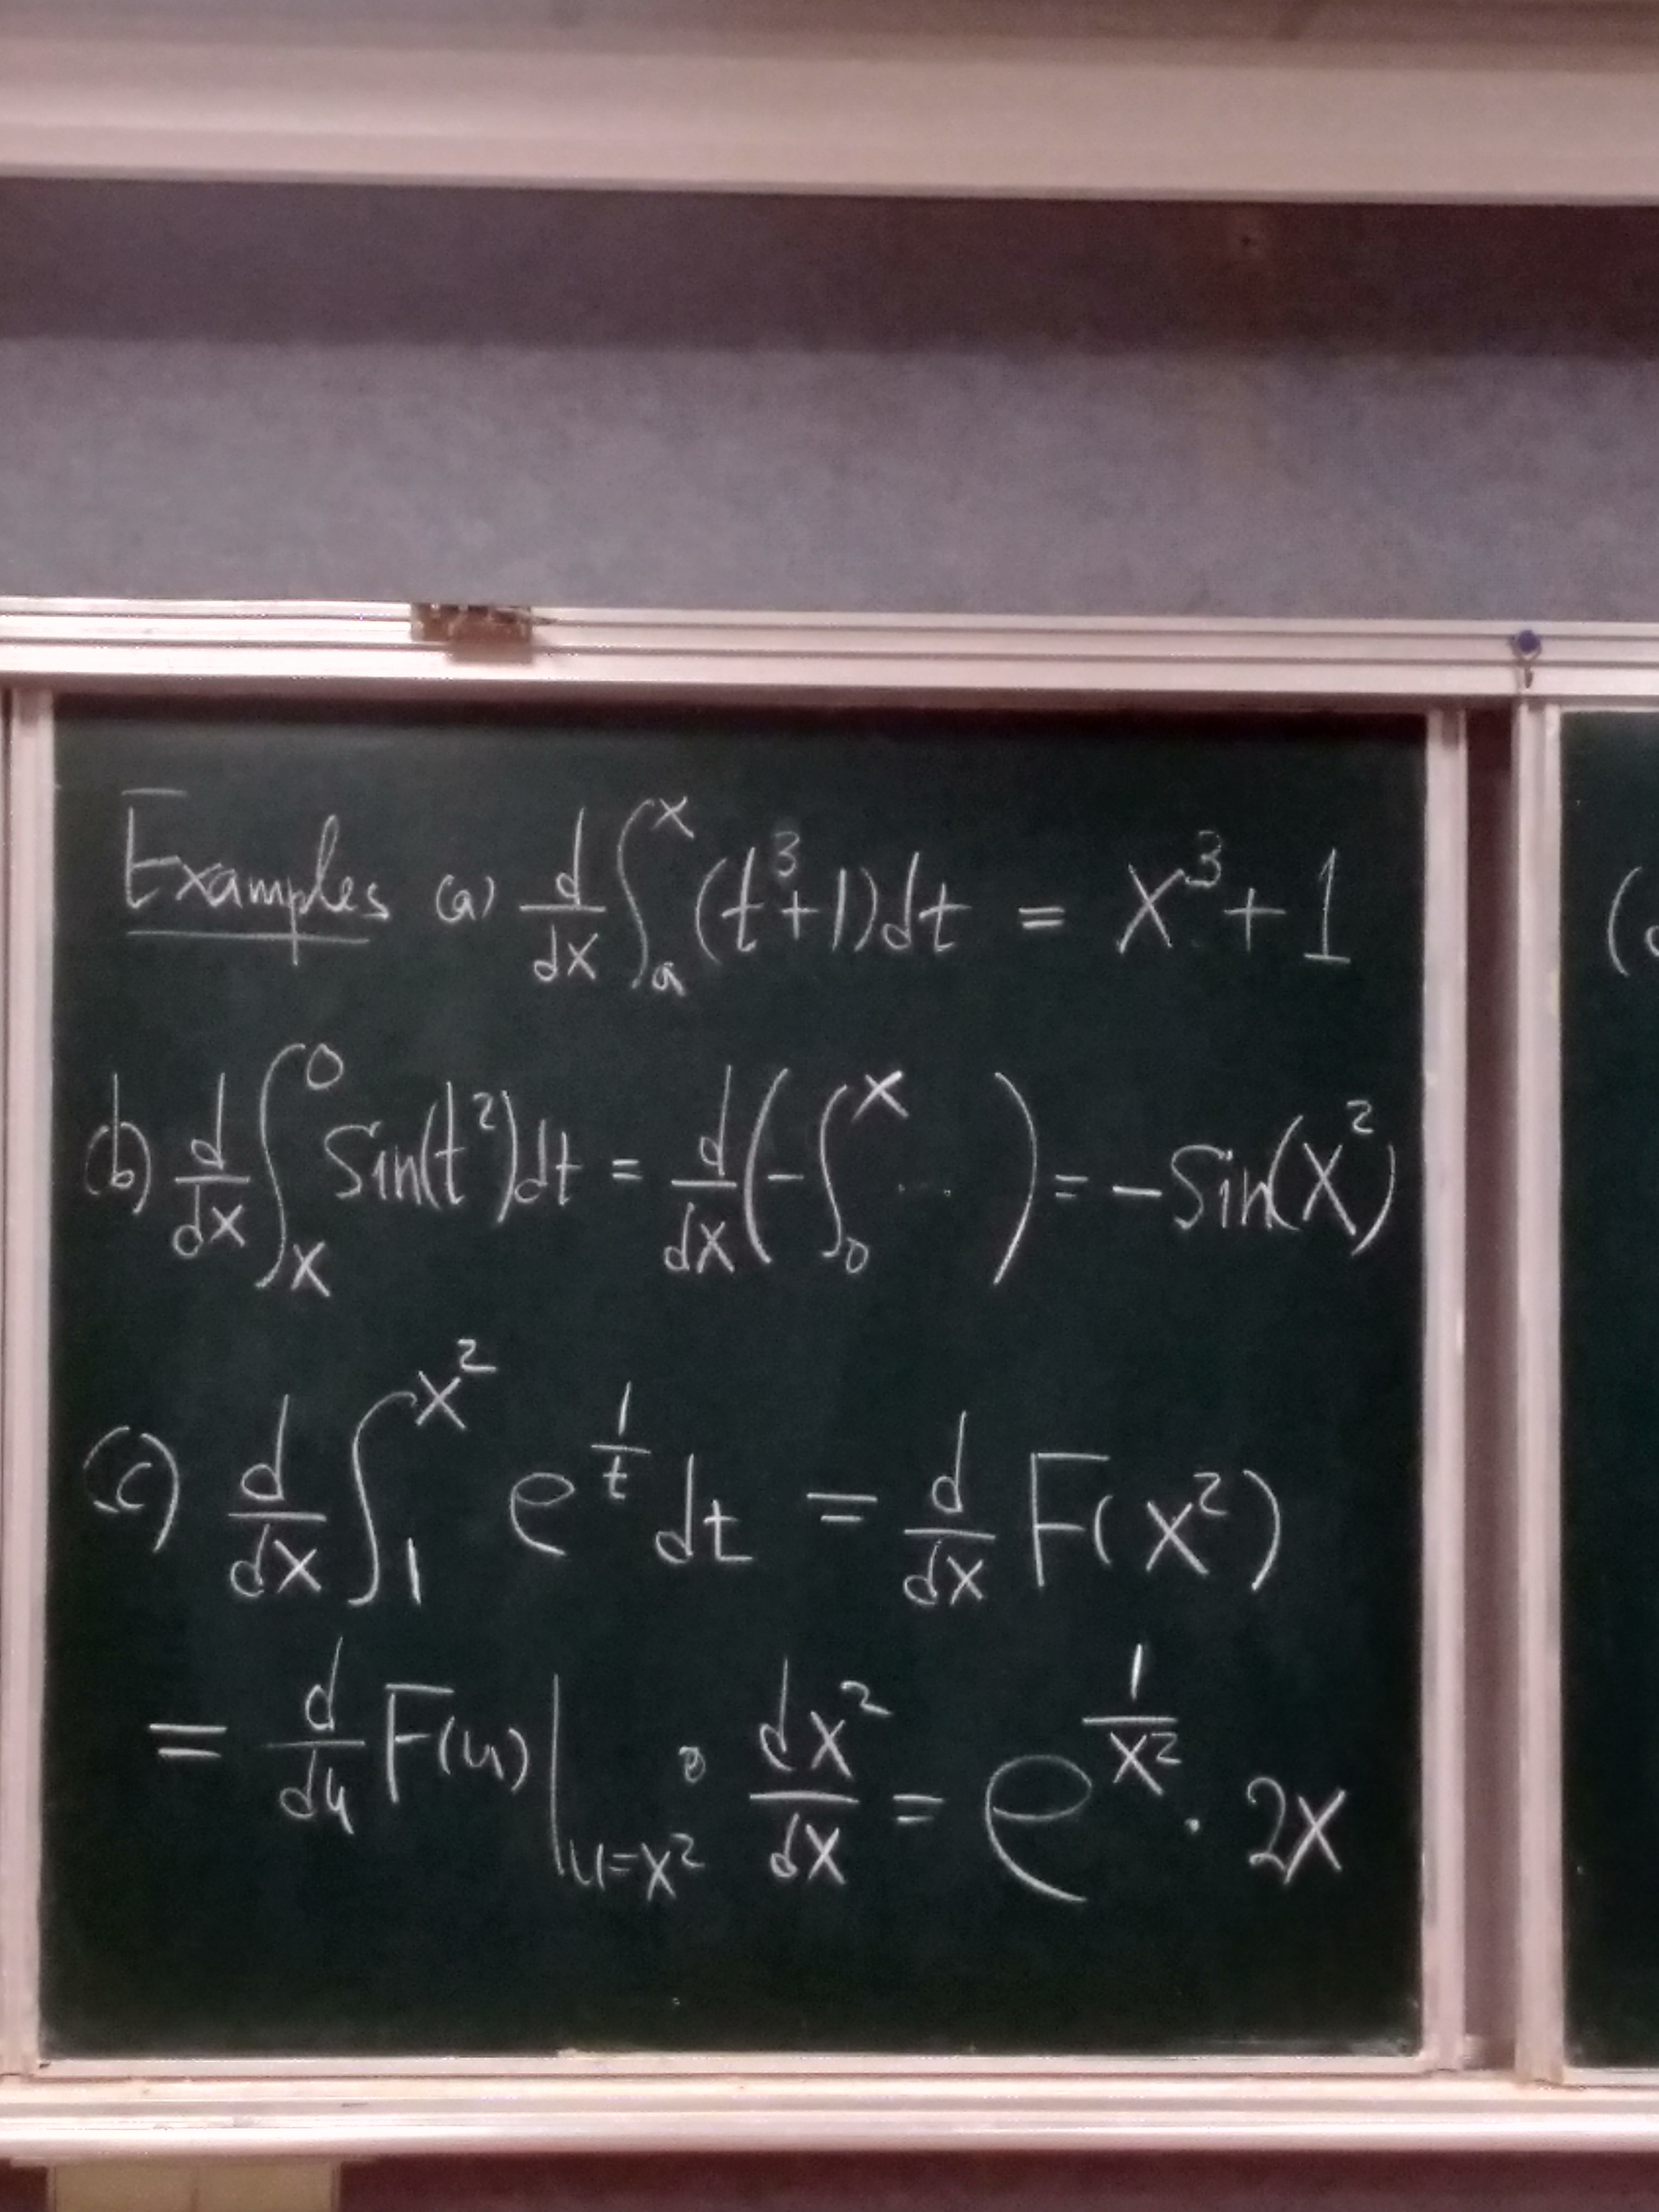 Examples (a) d/dx ∫_a^x (t³+1)dt = x³+1
(b) d/dx ∫_x^0 Sin(t²)dt = d/dx (-∫_0^x ... ) = -Sin(x²)
(c) d/dx ∫_1^{x²} e^{1/t} dt = d/dx F(x²)
= d/du F(u)|_{u=x²} · dx²/dx = e^{1/x²} · 2x
(